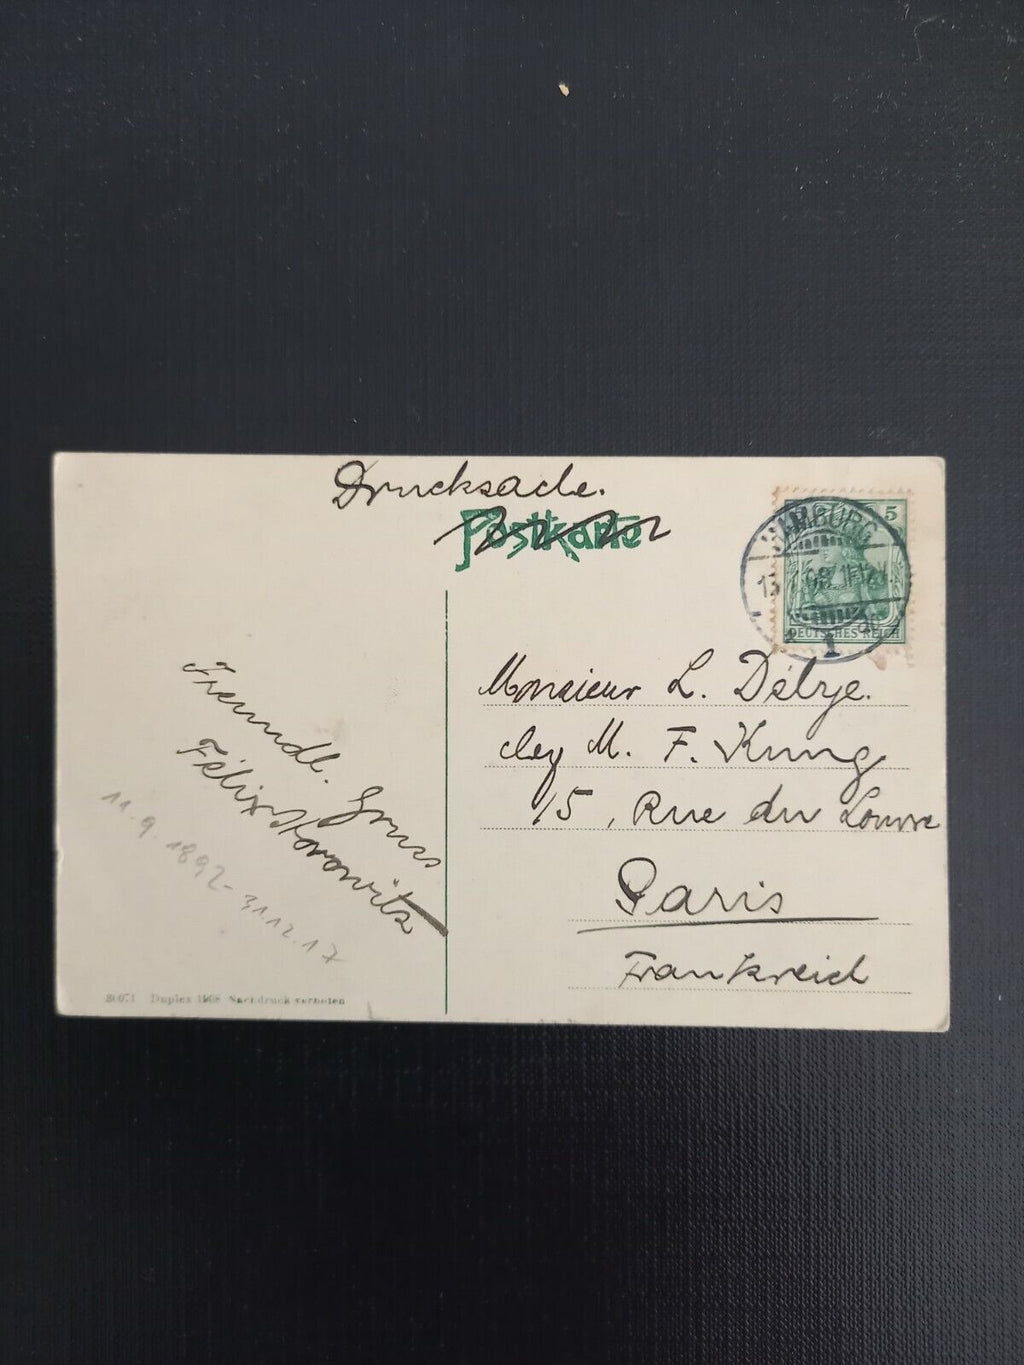 Drucksache.
Postkarte
HAMBURG
5
13
08. 11-12 V.
DEUTSCHES REICH
1
Monsieur L. Délye.
chez M. F. Kung
15, Rue du Louvre
Paris
Frankreich
Freundl. Gruss
Félix Horowitz
11.9.1892-31.12.17
Duplex 1908 Nachdruck verboten